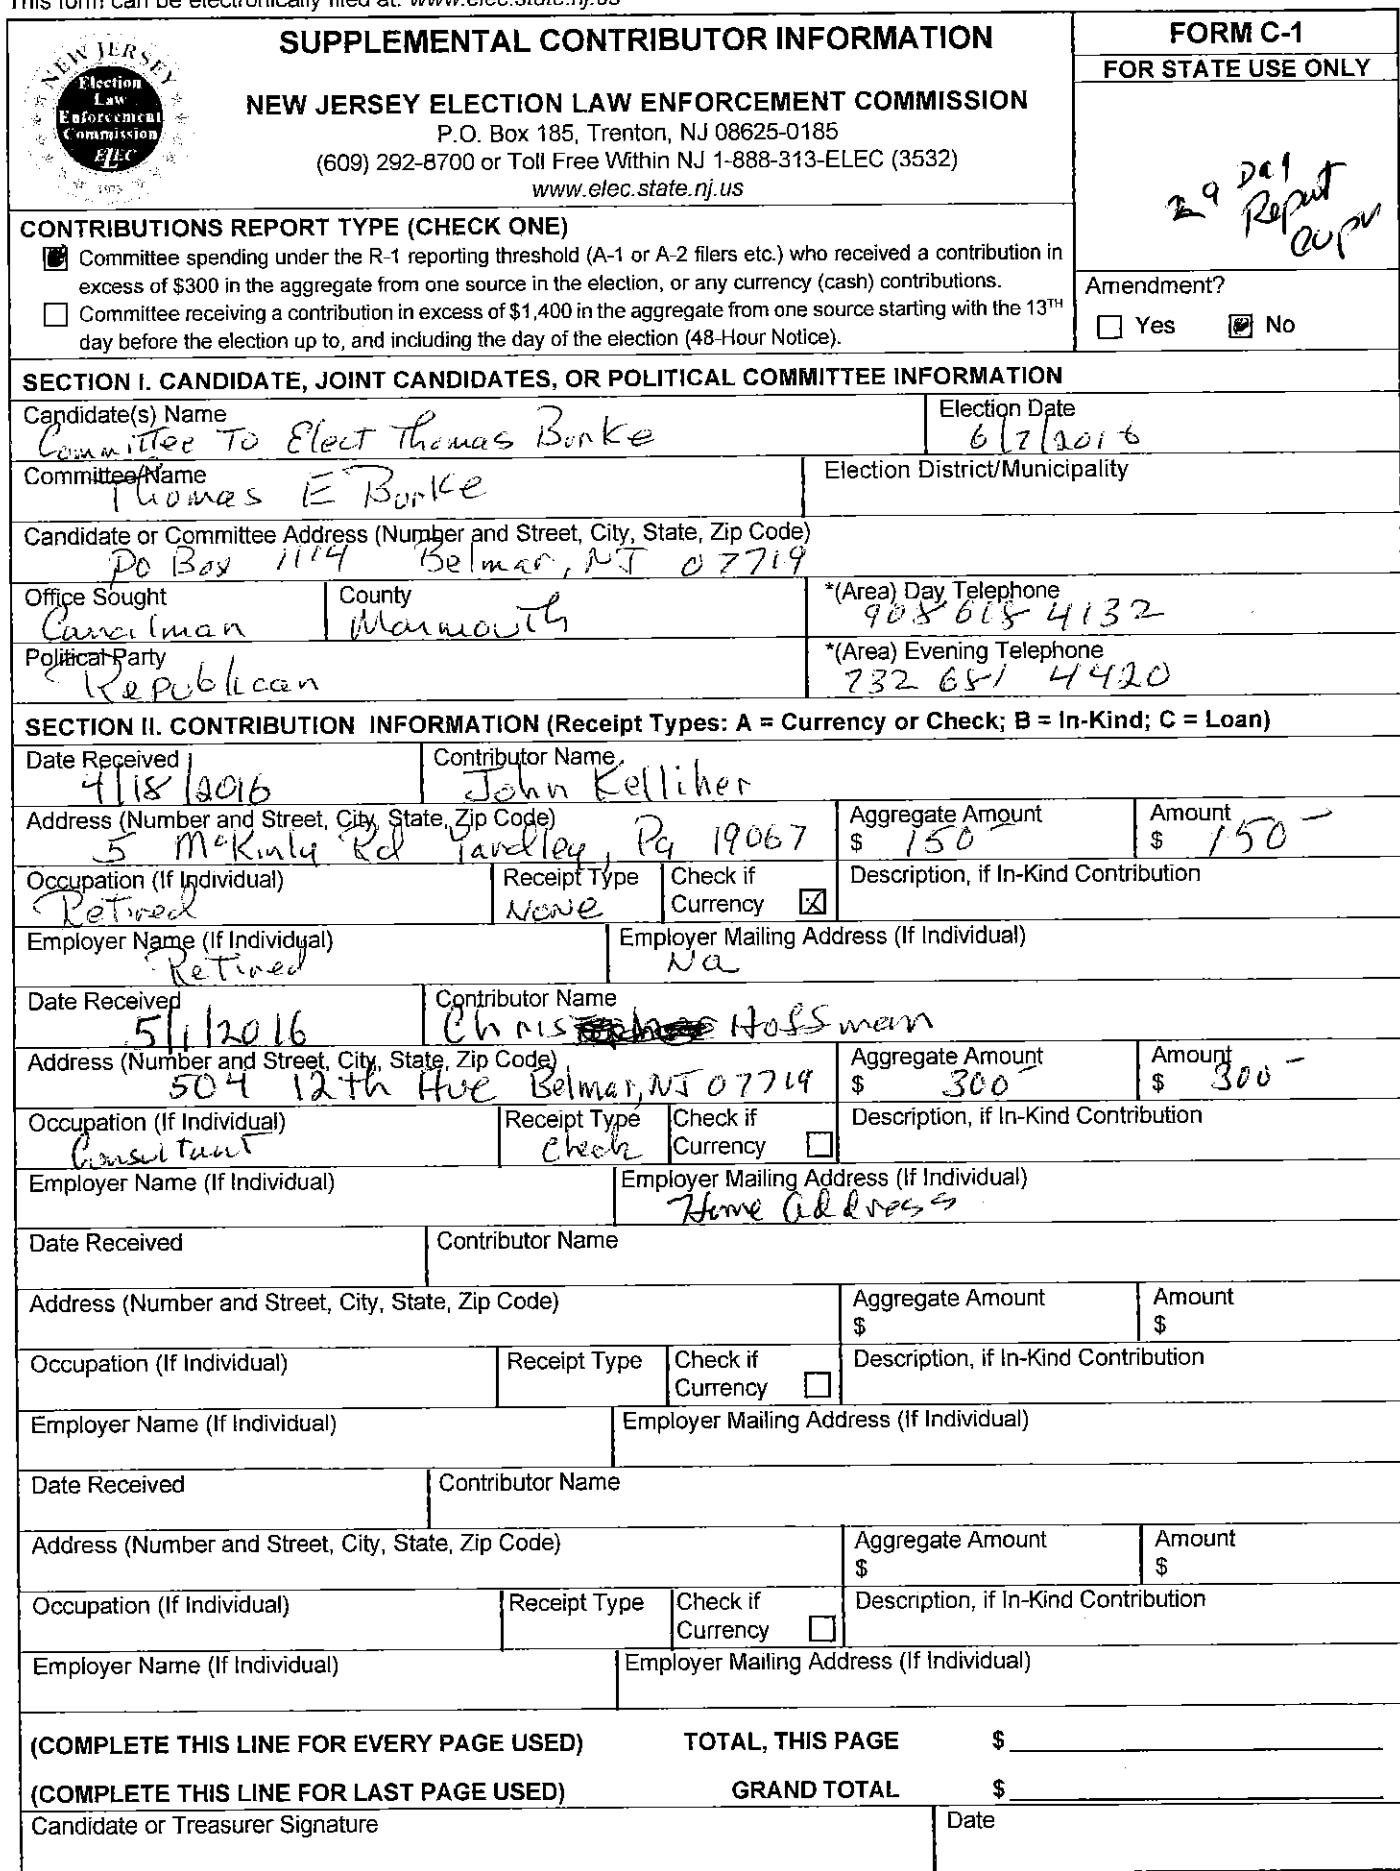 This form can be electronically filed at: www.elec.state.nj.us
SUPPLEMENTAL CONTRIBUTOR INFORMATION
FORM C-1
FOR STATE USE ONLY
NEW JERSEY
Election
Law
Enforcement
Commission
ELEC
1973
NEW JERSEY ELECTION LAW ENFORCEMENT COMMISSION
P.O. Box 185, Trenton, NJ 08625-0185
(609) 292-8700 or Toll Free Within NJ 1-888-313-ELEC (3532)
www.elec.state.nj.us
29 Day
Report
CONTRIBUTIONS REPORT TYPE (CHECK ONE)
Committee spending under the R-1 reporting threshold (A-1 or A-2 filers etc.) who received a contribution in
excess of $300 in the aggregate from one source in the election, or any currency (cash) contributions.
Committee receiving a contribution in excess of $1,400 in the aggregate from one source starting with the 13TH
day before the election up to, and including the day of the election (48-Hour Notice).
Amendment?
Yes No
SECTION I. CANDIDATE, JOINT CANDIDATES, OR POLITICAL COMMITTEE INFORMATION
Candidate(s) Name Election Date
Committee To Elect Thomas Burke 6/7/2016
Committee Name Election District/Municipality
Thomas E Burke
Candidate or Committee Address (Number and Street, City, State, Zip Code)
PO Box 1114 Belmar, NJ 07719
Office Sought County *(Area) Day Telephone
Councilman Monmouth 908 618 4132
Political Party *(Area) Evening Telephone
Republican 732 681 4420
SECTION II. CONTRIBUTION INFORMATION (Receipt Types: A = Currency or Check; B = In-Kind; C = Loan)
Date Received Contributor Name
4/18/2016 John Kelliher
Address (Number and Street, City, State, Zip Code) Aggregate Amount Amount
5 McKinly Rd Yardley, Pa 19067 $ 150- $ 150-
Occupation (If Individual) Receipt Type Check if Currency Description, if In-Kind Contribution
Retired None
Employer Name (If Individual) Employer Mailing Address (If Individual)
Retired Na
Date Received Contributor Name
5/1/2016 Chris Hoffman
Address (Number and Street, City, State, Zip Code) Aggregate Amount Amount
504 12th Ave Belmar, NJ 07719 $ 300- $ 300-
Occupation (If Individual) Receipt Type Check if Currency Description, if In-Kind Contribution
Consultant Check
Employer Name (If Individual) Employer Mailing Address (If Individual)
Home Address
Date Received Contributor Name
Address (Number and Street, City, State, Zip Code) Aggregate Amount Amount
$ $
Occupation (If Individual) Receipt Type Check if Currency Description, if In-Kind Contribution
Employer Name (If Individual) Employer Mailing Address (If Individual)
Date Received Contributor Name
Address (Number and Street, City, State, Zip Code) Aggregate Amount Amount
$ $
Occupation (If Individual) Receipt Type Check if Currency Description, if In-Kind Contribution
Employer Name (If Individual) Employer Mailing Address (If Individual)
(COMPLETE THIS LINE FOR EVERY PAGE USED) TOTAL, THIS PAGE $
(COMPLETE THIS LINE FOR LAST PAGE USED) GRAND TOTAL $
Candidate or Treasurer Signature Date